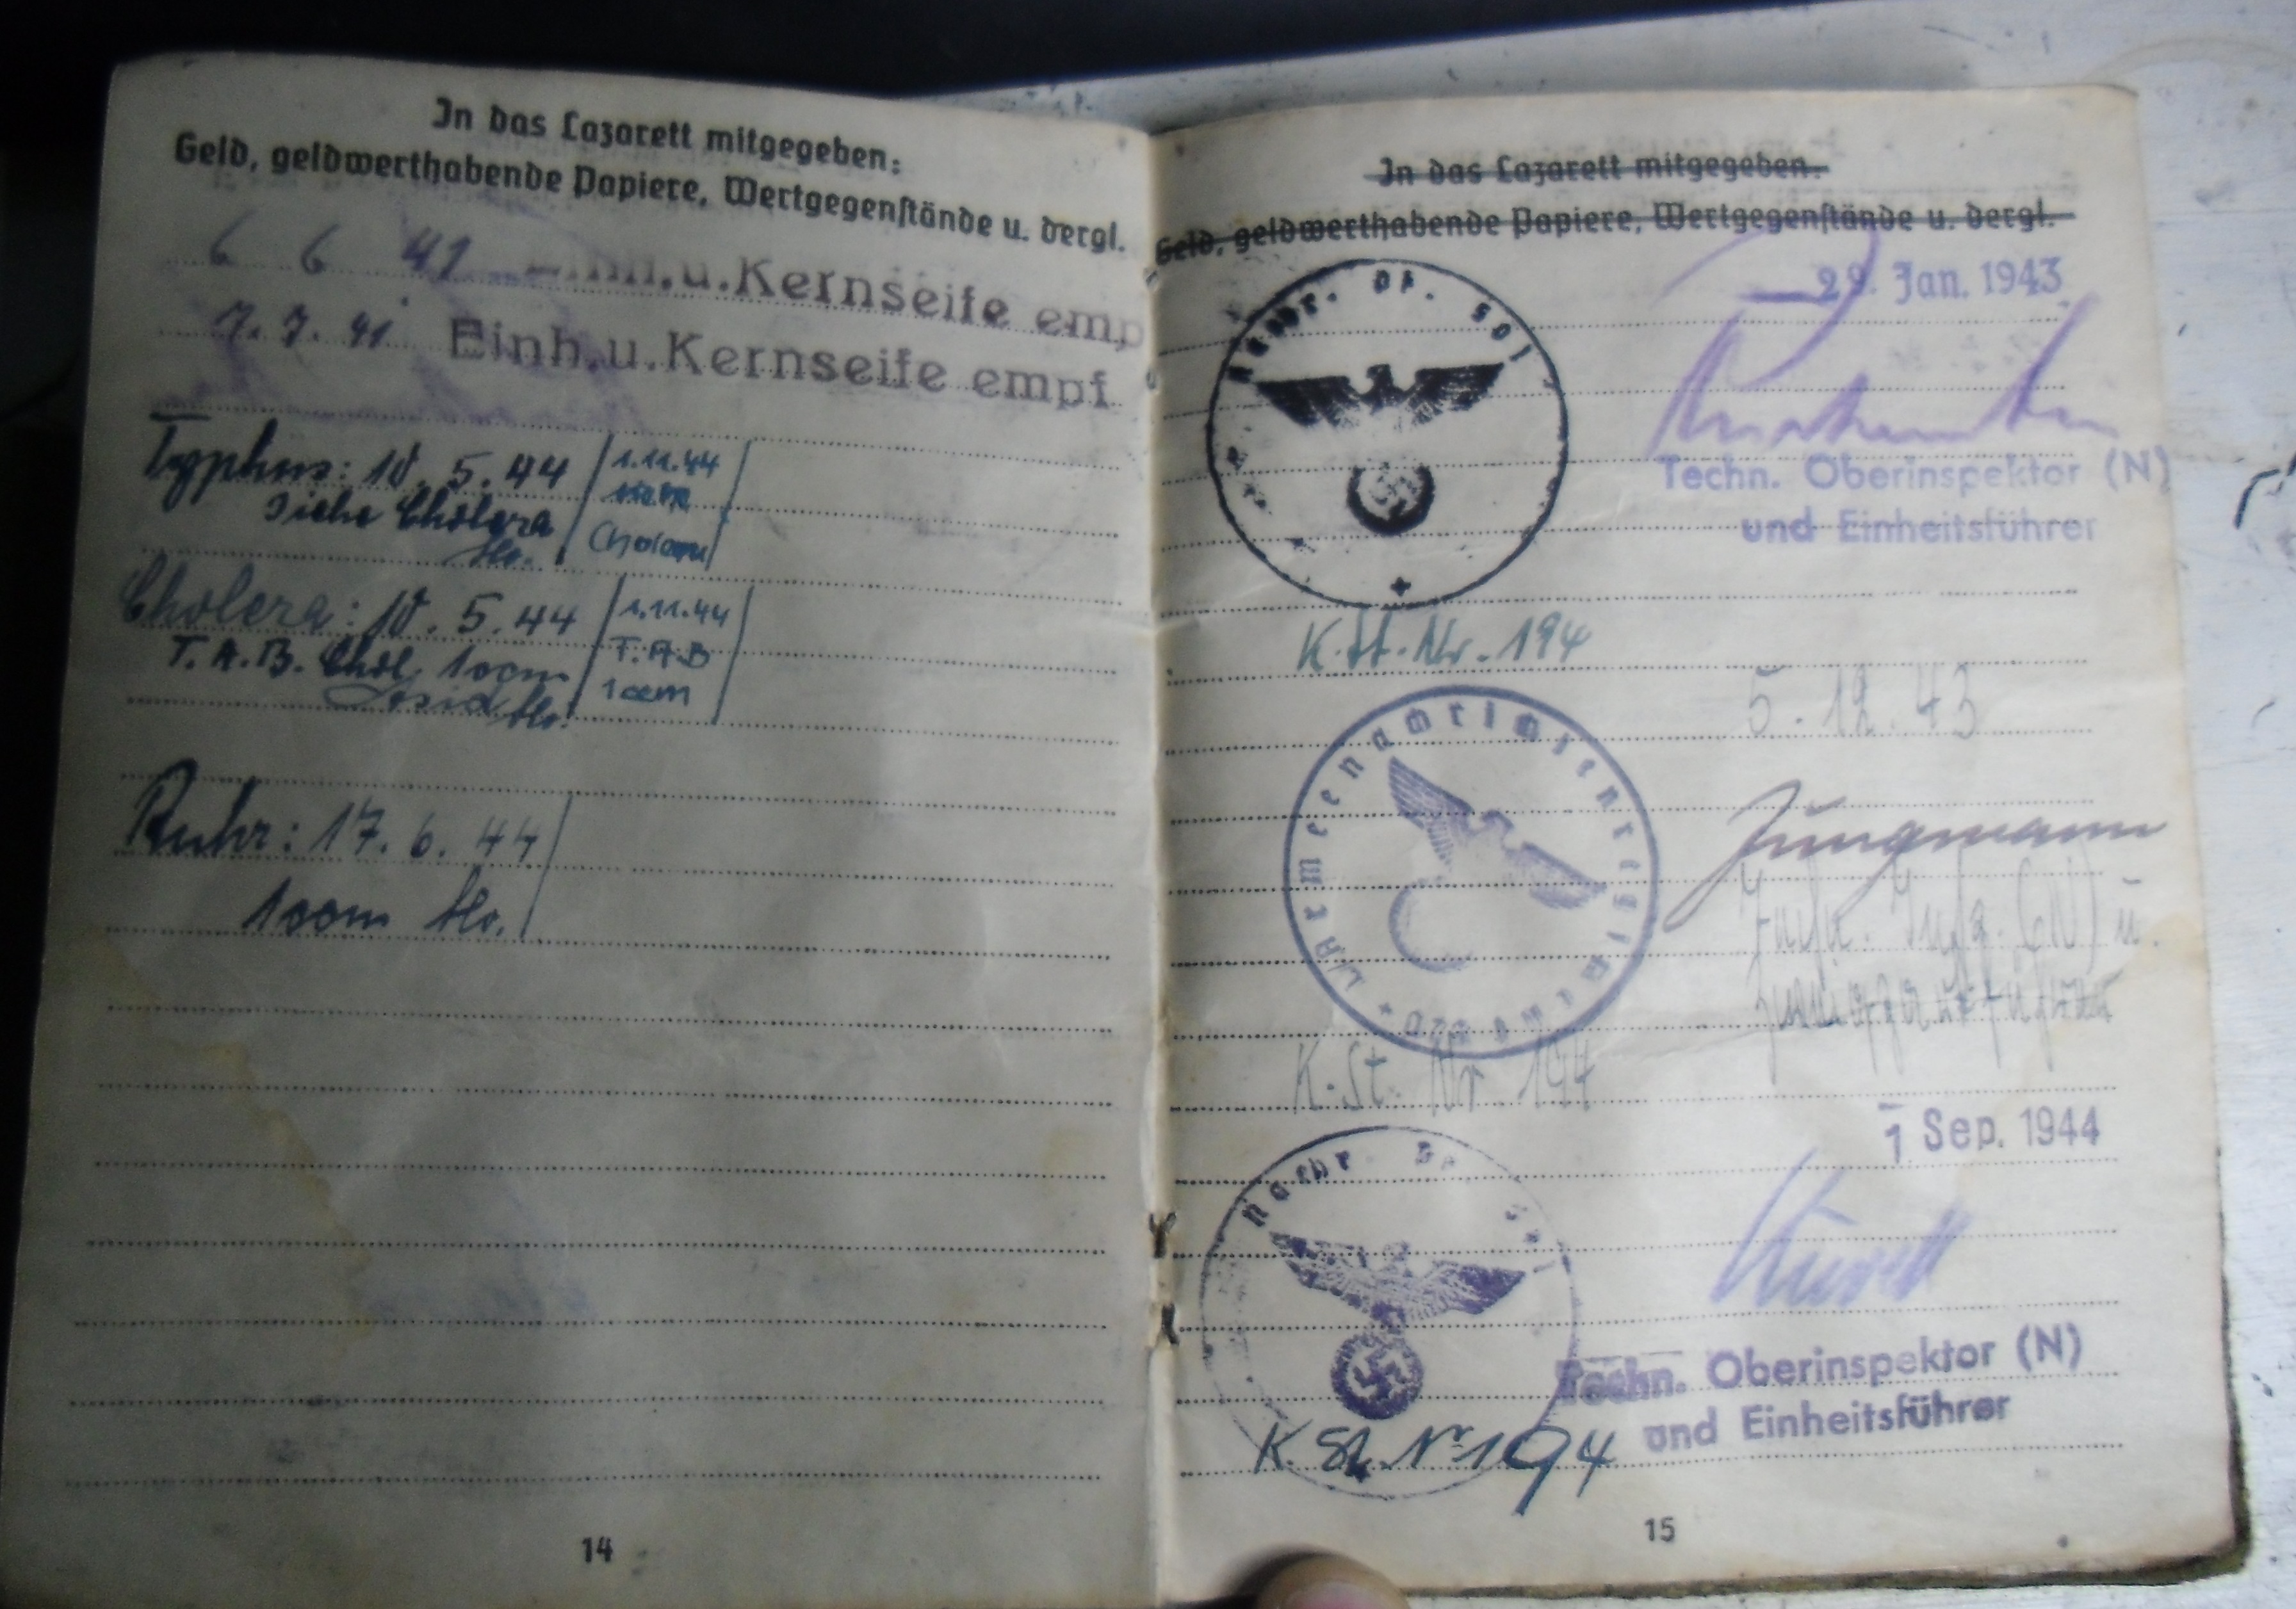 In das Lazarett mitgegeben:
Geld, geldwerthabende Papiere, Wertgegenstände u. dergl.
6 6 41 Einh.u.Kernseife emp
7.7.41 Einh.u.Kernseife empf
Typhus: 10.5.44
siehe Cholera
1.11.44
Cholera: 10.5.44
T.A.B. Chol. 1ccm
1.11.44
T.A.B
1ccm
Ruhr: 17.6.44
1ccm
14
In das Lazarett mitgegeben:
Geld, geldwerthabende Papiere, Wertgegenstände u. dergl.
29. Jan. 1943
Techn. Oberinspektor (N)
und Einheitsführer
K.St.Nr. 194
5.12.43
Jungmann
K.St. Nr. 194
1 Sep. 1944
Techn. Oberinspektor (N)
und Einheitsführer
K.St. Nr 194
15